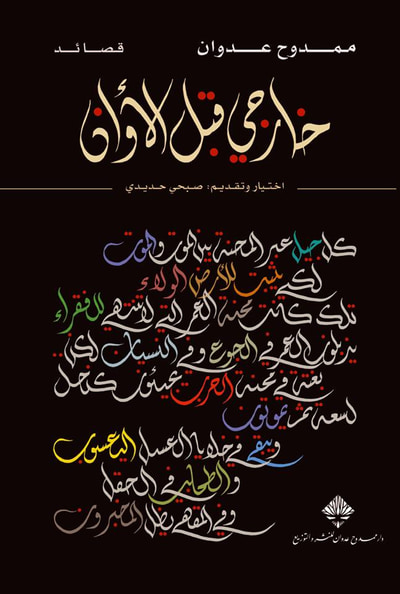 ممدوح عدوان
قصائد
خارجي قبل الأوان
اختيار وتقديم: صبحي حديدي
كل جيل عبر المحنة بين الموت والموت
لكي يثبت للأرض الولاء
تلك كانت محنة العمر التي لا تنتهي للفقراء
يزرعون العمر في الجوع وفي النسيان لكن..
بغتة في محنة الحرب يجيئون كنحل
لسعة ثم يموتون
ويبقى في خلايا العسل اليعسوب
والطحلب في الحقل
وفي المقهى يظل المخبرون
دار ممدوح عدوان للنشر والتوزيع